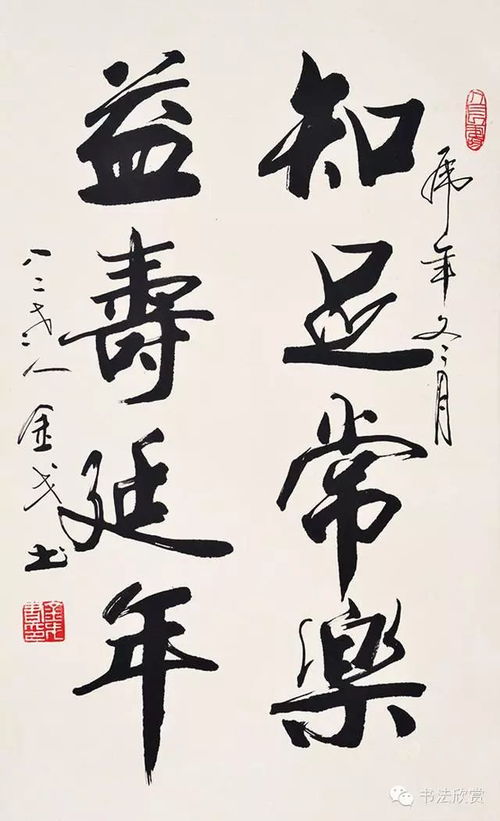 虎年冬月
知足常樂
益壽延年
八二老人金戈书
书法欣赏